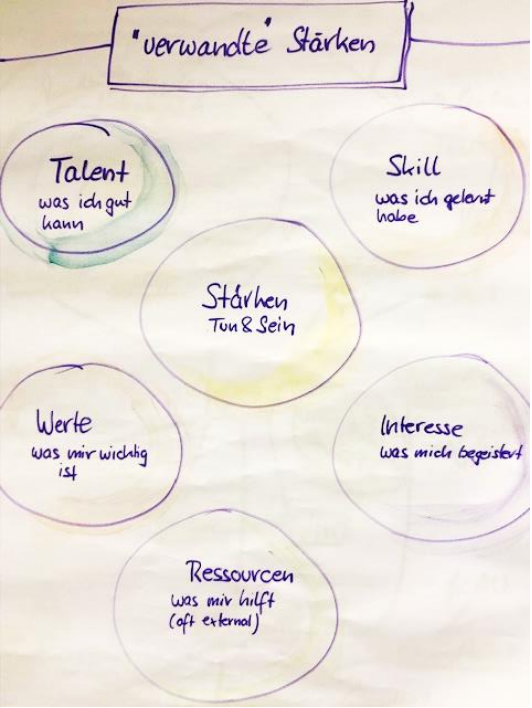 "verwandte" Stärken
Talent
was ich gut
kann
Skill
was ich gelernt
habe
Stärken
Tun & Sein
Werte
was mir wichtig
ist
Interesse
was mich begeistert
Ressourcen
was mir hilft
(oft external)